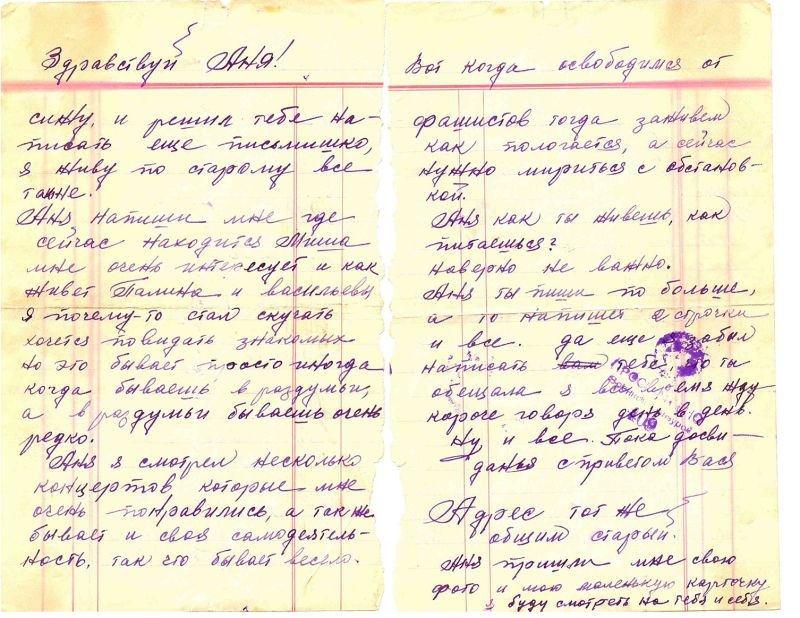 Здравствуй Аня!
сижу, и решил тебе на-
писать еще письмишко,
я живу по старому все
также.
Аня напиши мне где
сейчас находится Миша
мне очень интересует и как
живет Галина и Васильевы
я почему-то стал скучать
хочется повидать знакомых
но это бывает просто иногда
когда бываешь в раздумьи,
а в раздумьи бываешь очень
редко.
Аня я смотрел несколько
концертов которые мне
очень понравились, а так же
бывает и своя самодеятель-
ность, так что бывает весело.
Вот когда освободимся от
фашистов тогда заживем
как пологается, а сейчас
нужно мириться с обстанов-
кой.
Аня как ты живешь, как
питаешься?
наверно не важно.
Аня ты пиши по больше,
а то напишеш 2 строчки
и все. да еще забыл
написать вам тебе что ты
обещала я все время жду
короче говоря день в день.
Ну и все. Пока досви-
данья с приветом Вася
Адрес тот же
общим старый.
Аня пришли мне свою
фото и мою маленькую карточку
я буду смотреть на тебя и себя.